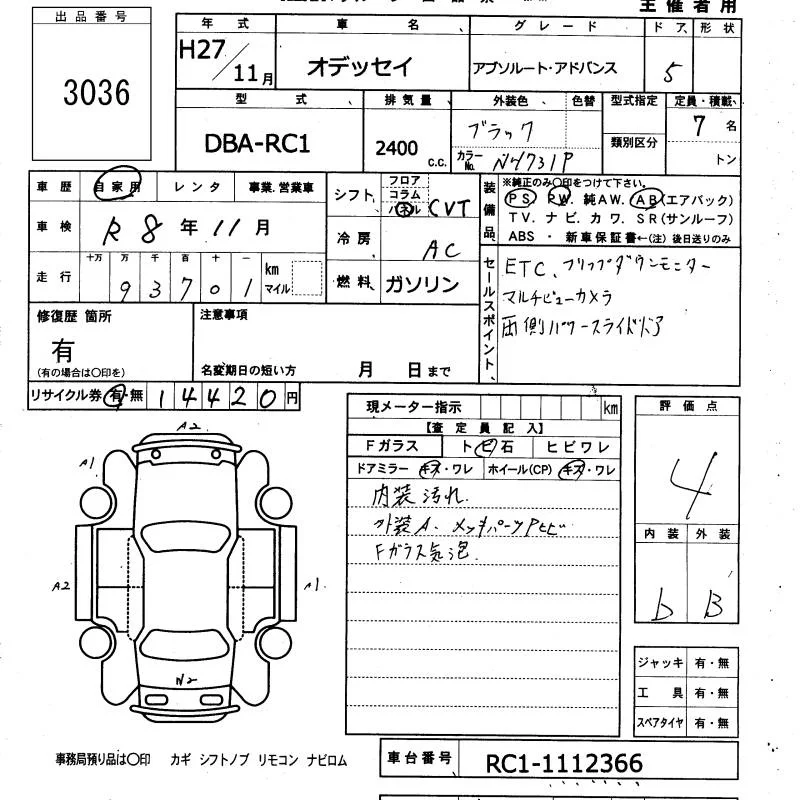 主催者用
出品番号
3036
年式 車名 グレード ドア 形状
H27/11月 オデッセイ アブソルート・アドバンス 5
型式 排気量 外装色 色替 型式指定 定員・積載
DBA-RC1 2400 c.c. ブラック 7名
類別区分
カラーNo. NH731P トン
車歴 自家用 レンタ 事業.営業車
車検 R8年11月
走行 十万 万 千 百 十 一
93701 km マイル
シフト フロア コラム パネル CVT
冷房 AC
燃料 ガソリン
装備品 ※純正のみ〇印をつけて下さい。
PS PW 純AW. AB(エアバック)
TV. ナビ. カワ. SR(サンルーフ)
ABS ・ 新車保証書←(注) 後日送りのみ
セールスポイント
ETC、フリップダウンモニター
マルチビューカメラ
両側パワースライドドア
修復歴 箇所
有
(有の場合は〇印を)
注意事項
名変期日の短い方 月 日まで
リサイクル券 有・無 14420円
現メーター指示 km
【査定員記入】
Fガラス トビ石 ヒビワレ
ドアミラー キズ・ワレ ホイール(CP) キズ・ワレ
内装汚れ.
外装A. メッキパーツPヒビ
Fガラス気泡.
評価点
4
内装 外装
b B
A2
A1
A2
A1
W2
ジャッキ 有・無
工具 有・無
スペアタイヤ 有・無
事務局預り品は〇印 カギ シフトノブ リモコン ナビロム
車台番号 RC1-1112366